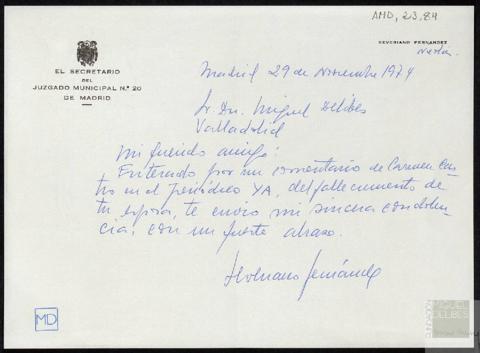 AMD, 23, 84
SEVERIANO FERNÁNDEZ
EL SECRETARIO
DEL
JUZGADO MUNICIPAL N.º 20
DE MADRID
Madrid 29 de Noviembre 1974
Sr. Dn. Miguel Delibes
Valladolid
Mi querido amigo:
Enterado, por un comentario de Carmen Cas-
tro en el periódico YA, del fallecimiento de
tu esposa, te envío mi sincera condolen-
cia, con un fuerte abrazo.
Severiano Fernández
MD
FUNDACIÓN
MIGUEL
DELIBES